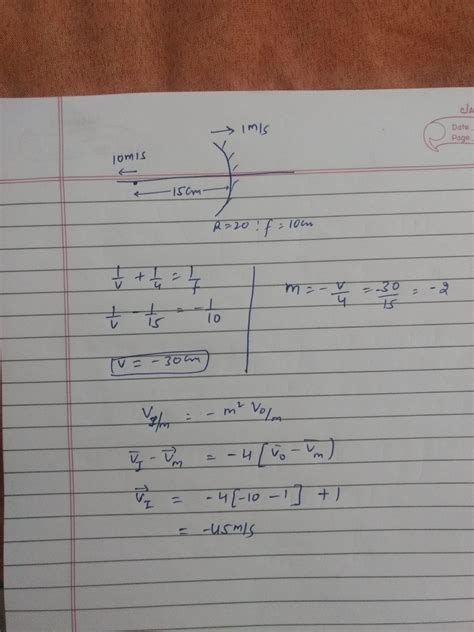 Date
Page
→ 1m/s
10m/s
←
15cm
R=20 ; f=10cm
1/v + 1/u = 1/f
1/v - 1/15 = -1/10
v = -30cm
m = -v/u = -30/15 = -2
V_I/m = -m² V_O/m
V⃗_I - V⃗_m = -4[V⃗_O - V⃗_m]
V⃗_I = -4[-10 -1] + 1
= -45m/s